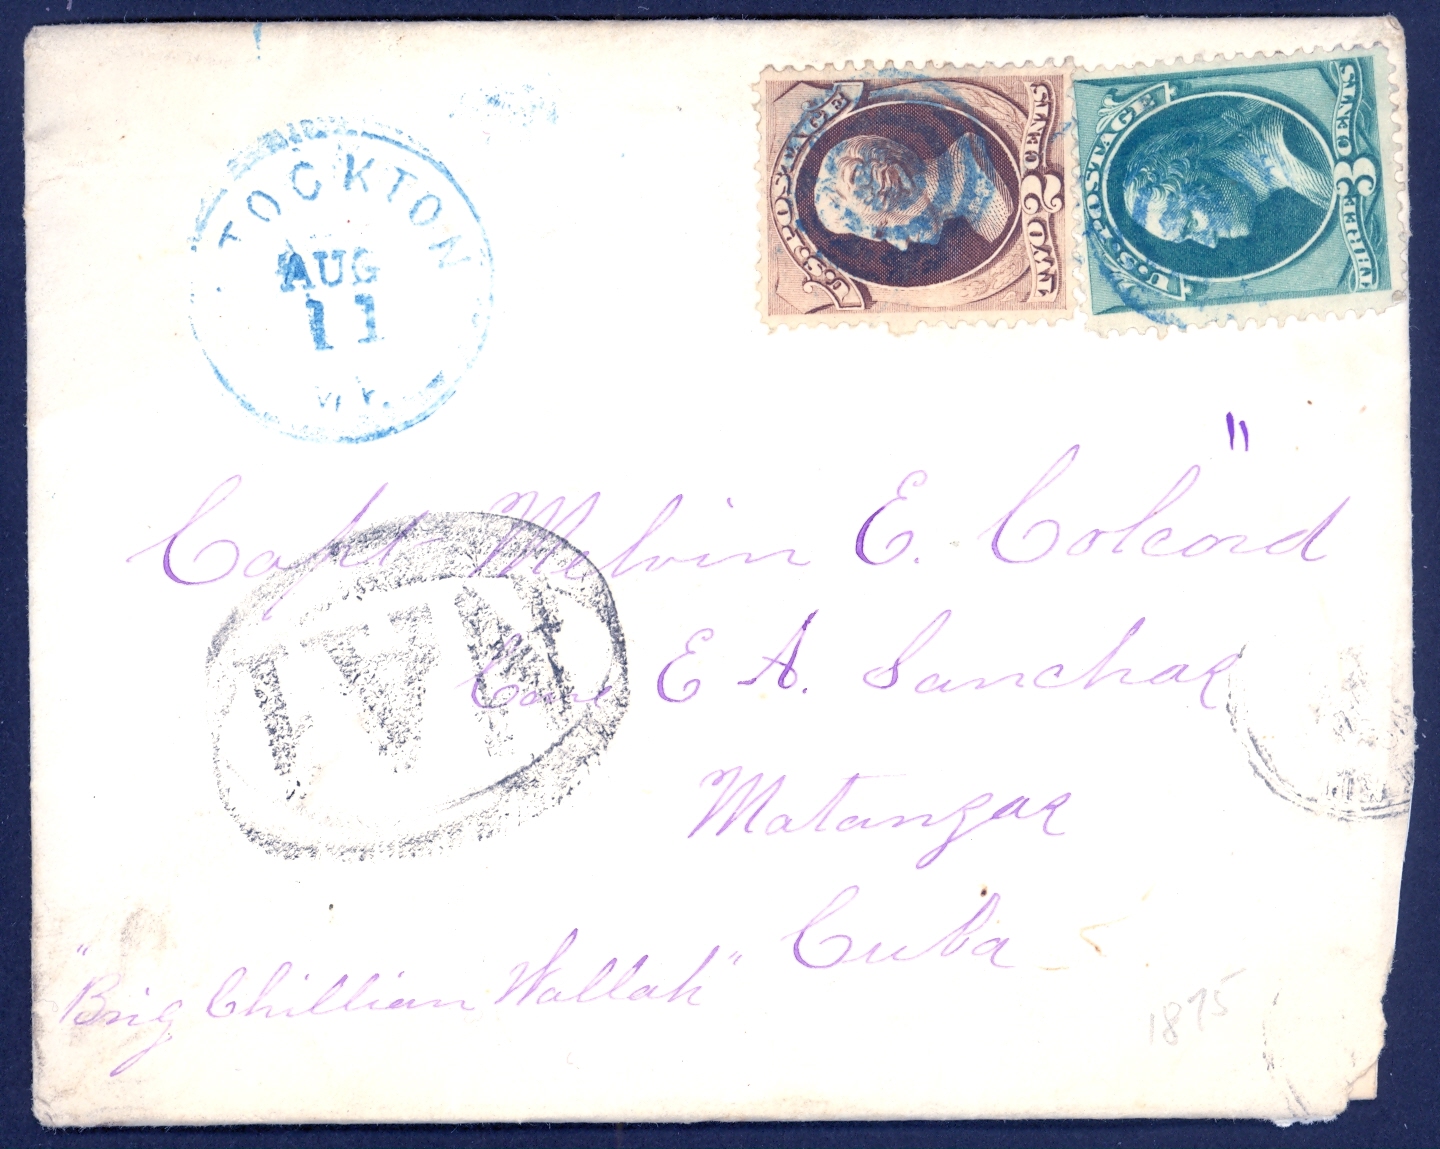 TOCKTON
AUG
11
U.S. POSTAGE
TWO 2 CENTS
U.S. POSTAGE
THREE 3 CENTS
"
Capt Melvin E. Colcord
Care E A. Sanchaz
Matanzas
Cuba
"Brig Chillian Wallah"
NA1
1875